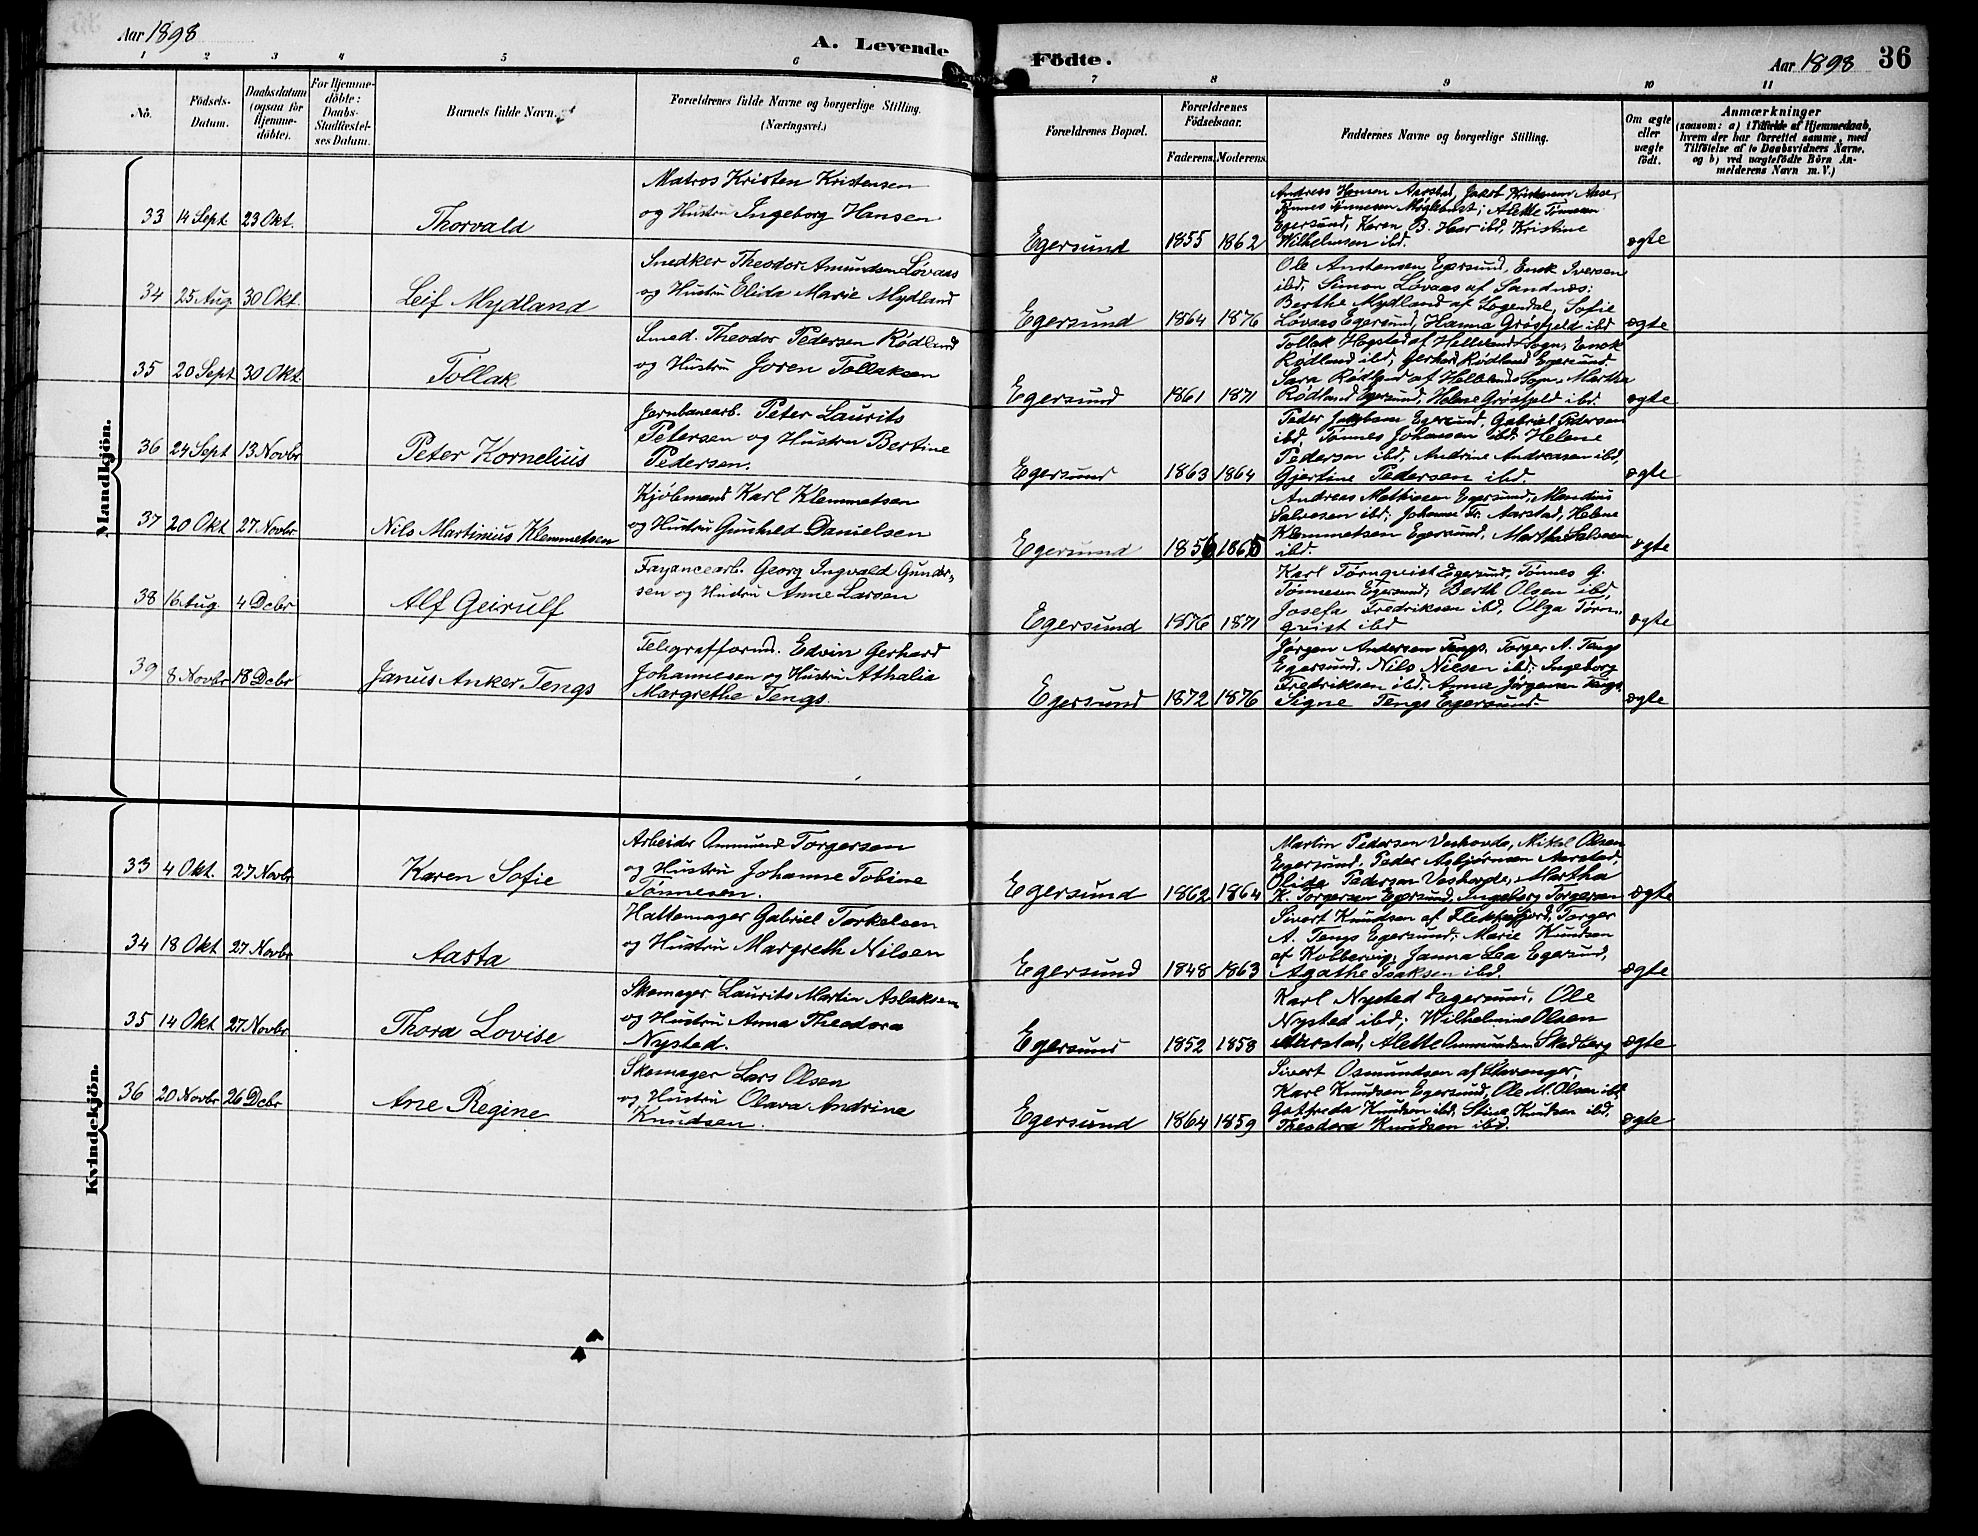 Aar 1898
A. Levende
Födte.
Aar 1898
36
1 2 3 4 5 6 7 8 9 10 11
No.
Födsels-
Datum.
Daabsdatum
(ogsaa for
Hjemme-
döbte).
For Hjemme-
döbte:
Daabs-
Stadfæstel-
ses Datum.
Barnets fulde Navn.
Forældrenes fulde Navne og borgerlige Stilling.
(Næringsvei.)
Forældrenes Bopæl.
Forældrenes
Födselsaar.
Faderens. Moderens.
Faddernes Navne og borgerlige Stilling.
Om ægte
eller
uægte
födt.
Anmærkninger
(saasom: a) i Tilfælde af Hjemmedaab,
hvem der har forrettet samme, med
Tilföielse af to Daabsvidners Navne.
og b) ved uægtefödte Börn An-
melderens Navn m. V.)
Mandkjön.
33 14 Sept 23 Okt.
Thorvald
Matros Kristen Kristensen
og Hustru Ingeborg Hansen
Egersund 1855 1862
Andreas Hansen Aarstad, Jakob Kristensen Aase,
Tønnes Tønnesen Møglebust; Alette Tønnesen
Egersund, Karen B. Har ibd, Kristine
Wilhelmsen ibd.
ægte
34 25 Aug 30 Okt.
Leif Mydland
Snedker Theodor Amundsen Løvaas
og Hustru Elida Marie Mydland
Egersund 1864 1876
Ole Anstensen Egersund, Enok Iversen
ibd, Simon Løvaas af Sandnæs;
Berthe Mydland af Sogendal, Sofie
Løvaas Egersund, Hanna Grøsfjeld ibd
ægte
35 20 Sept 30 Okt.
Tollak
Smed. Theodor Pedersen Rødland
og Hustru Joren Tollaksen
Egersund 1861 1871
Tollak Hogstad af Hellelands Sogn, Enok
Rødland ibd, Gerhard Rødland Egersund.
Sara Rødland af Hellelands Sogn, Martha
Rødland Egersund, Helene Grøsfjeld ibd.
ægte
36 24 Sept 13 Novbr
Peter Kornelius
Jernbanearb. Peter Laurits
Petersen og Hustru Bertine
Pedersen.
Egersund 1863 1864
Peder Jakobsen Egersund, Gabriel Pedersen
ibd, Tønnes Johansen ibd; Helene
Pedersen ibd, Andrine Andreasen ibd,
Gjertine Pedersen ibd.
ægte
37 20 Okt 27 Novbr
Nils Martinius Klemmetsen
Kjøbmand Karl Klemmetsen
og Hustru Gunhild Danielsen
Egersund 1856 1865
Andreas Mathisen Egersund, Mandius
Salvesen ibd; Johanne Fr. Aarstad, Helene
Klemmetsen Egersund, Martha Salvesen
ibd.
ægte
38 16 Aug. 4 Debr
Alf Geirulf
Fayancearb. Georg Ingvald Gunder-
sen og Hustru Anne Larsen
Egersund 1876 1871
Karl Tørnqvist Egersund, Tønnes G.
Tønnesen Egersund; Berth Olsen ibd,
Josefa Fredriksen ibd, Olga Tørn-
qvist ibd
ægte
39 8 Novbr 18 Debr
Janus Anker Tengs
Telegrafform. Edvin Gerhard
Johannesen og Hustru Atthalia
Margrethe Tengs.
Egersund 1872 1876
Jørgen Andersen Tengs, Torger A. Tengs
Egersund, Nils Nilsen ibd; Ingeborg
Fredriksen ibd, Anna Jørgensen Tengs,
Signe Tengs Egersund.
ægte
Kvindekjön.
33 4 Okt. 27 Novbr
Karen Sofie
Arbeider Ommund Torgersen
og Hustru Johanne Tobine
Tønnesen.
Egersund 1862 1864
Martin Pedersen Veshovde, Mikkl Olsen
Egersund, Peder Asbjørnsen Aarstad,
Olide Pedersen Veshovde, Martha
K. Torgersen Egersund, Ingeborg Torgersen
ægte
34 18 Okt 27 Novbr
Aasta
Hattemager Gabriel Torkelsen
og Hustru Margreth Nilsen
Egersund 1848 1863
Sivert Knudsen af Flekkefjord, Torger
A. Tengs Egersund; Marie Knudsen
af Kolbervig, Janna Lea Egersund,
Agathe Isaksen ibd.
ægte
35 14 Okt 27 Novbr
Thora Lovise
Skomager Laurits Martin Aslaksen
og Hustru Anna Theodora
Nysted.
Egersund 1852 1858
Karl Nysted Egersund, Ole
Nysted ibd; Wilhelmine Olsen
Aarstad, Alette Ommundsen Skadberg
ægte
36 20 Novbr 26 Debr
Ane Regine
Skomager Lars Olsen
og Hustru Olava Andrine
Knudsen.
Egersund 1864 1859
Sivert Osmundsen af Stavanger,
Karl Knudsen Egersund, Ole M. Olsen ibd,
Gotfreda Knudsen ibd, Stine Knudsen ibd,
Theodora Knudsen ibd.
ægte